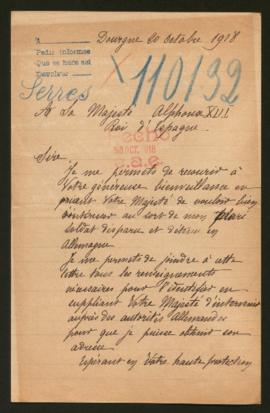 A
Pedir informes
Que se hara así
Devolver
Dourgne 20 octobre 1918
X 110132
Serres
A Sa Majesté Alphonse XIII
Roi d'Espagne
hecho
30 OCT. 918
Sire,
Je me permets de recourir à
Votre généreuse bienveillance en
priant Votre Majesté de vouloir bien
s'intéresser au sort de mon mari
soldat disparu et détenu en
Allemagne
Je me permets de joindre à cette
lettre tous les renseignements
nécessaires pour l'identifier en
suppliant Votre Majesté d'intervenir
auprès des autorités Allemandes
pour que je puisse obtenir son
adresse
Espérant en Votre haute protection